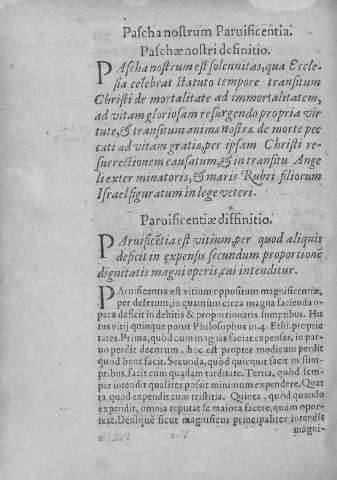 Pascha nostrum Paruificentia.
Paschæ nostri definitio.
PAscha nostrum est solennitas, qua Eccle-
sia celebrat statuto tempore transitum
Christi de mortalitate ad immortalitatem,
ad vitam gloriosam resurgendo propria vir
tute, & transitum animæ nostræ de morte pec
cati ad vitam gratiæ, per ipsam Christi re-
surrectionem causatum, & in transitu Ange
li exterminatoris, & maris Rubri filiorum
Israel figuratum in lege veteri.
Paruificentiæ diffinitio.
PAruificẽtia est vitium, per quod aliquis
deficit in expensis secundum proportionẽ
dignitatis magni operis, cui intenditur.
PAruificentia est vitium oppositum magnificentiæ,
per defectum, in quantum circa magna facienda o-
pera deficit in debitis & proportionatis sumptibus. Hu
ius vitij quinque ponit Philosophus in. 4. Ethi. proprie
tates. Prima, quòd cum magnas faciat expensas, in par-
uo perdit decorum, hoc est propter modicum perdit
quod bene facit. Secunda, quòd quicquid facit in sum-
ptibus, facit cum quadam tarditate. Tertia, quòd sem-
per intendit qualiter possit minimum expendere. Quar
ta quod expendit cum tristitia. Quinta, quòd quando
expendit, omnia reputat se maiora facere, quam opor-
teat. Denique sicut magnificus principaliter intendit
magni-